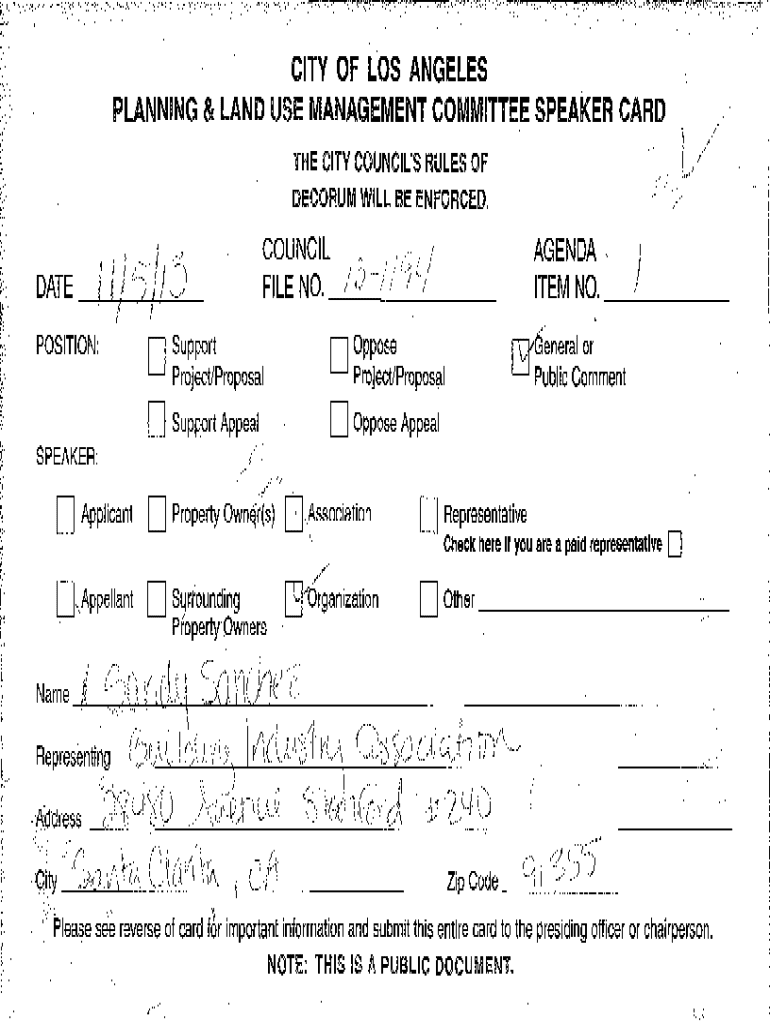 CITY OF LOS ANGELES
PLANNING & LAND USE MANAGEMENT COMMITTEE SPEAKER CARD
THE CITY COUNCIL'S RULES OF
DECORUM WILL BE ENFORCED.
DATE 11/5/13 COUNCIL FILE NO. 12-1194 AGENDA ITEM NO. 1
POSITION: Support Project/Proposal Oppose Project/Proposal General or Public Comment
Support Appeal Oppose Appeal
SPEAKER:
Applicant Property Owner(s) Association Representative
Check here if you are a paid representative
Appellant Surrounding Property Owners Organization Other
Name Sandy Sanchez
Representing Building Industry Association
Address 28480 Avenue #240
City Santa Clarita, CA Zip Code 91355
Please see reverse of card for important information and submit this entire card to the presiding officer or chairperson.
NOTE: THIS IS A PUBLIC DOCUMENT.